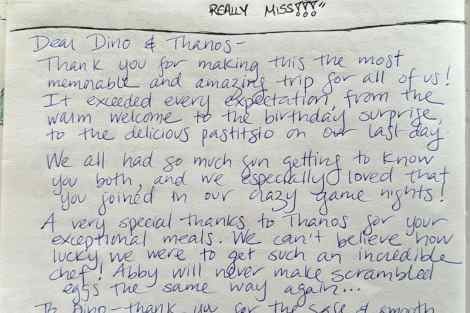 REALLY MISS!!!"
Dear Dino & Thanos-
Thank you for making this the most
memorable and amazing trip for all of us!
It exceeded every expectation, from the
warm welcome to the birthday surprise,
to the delicious pastitsio on our last day.
We all had so much fun getting to know
you both, and we especially loved that
you joined in our crazy game nights!
A very special thanks to Thanos for your
exceptional meals. We can't believe how
lucky we were to get such an incredible
chef! Abby will never make scrambled
eggs the same way again...
To Dino-thank you for the safe & smooth